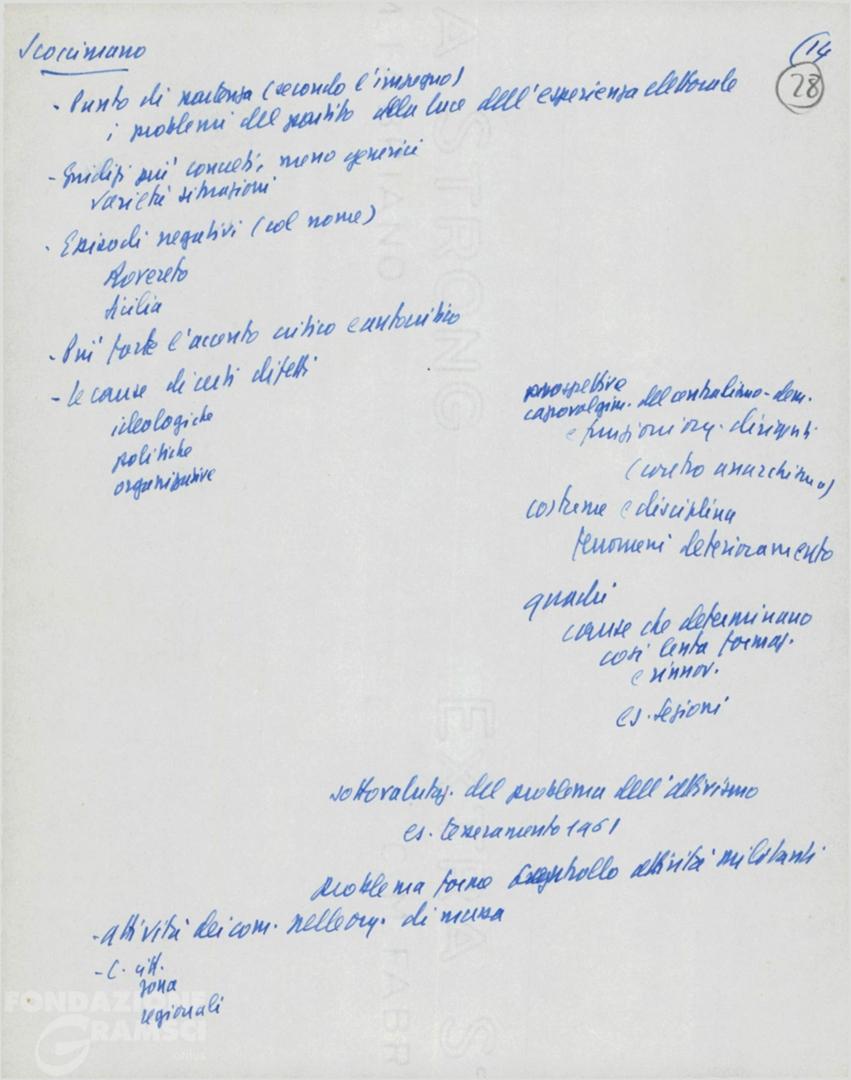 Scoccimarro
(14
28
- Punto di partenza (secondo l'impegno)
i problemi del partito alla luce dell'esperienza elettorale
- Giudizi più concreti, meno generici
varietà situazioni
- Episodi negativi (col nome)
Rovereto
Sicilia
- Più forte l'accento critico e autocritico
- le cause di certi difetti
ideologiche
politiche
organizzative
prospettive
capovolgim. del centralismo-dem.
e funzioni org. dirigenti
(contro anarchismo)
costume e disciplina
fenomeni deterioramento
quadri
cause che determinano
così lenta formaz.
e rinnov.
es. sezioni
sottovalutaz. del problema dell'attivismo
es. tesseramento 1961
problema forme controllo attività militanti
- attività dei com. nelle org. di massa
- C. citt.
zona
regionali
FONDAZIONE
GRAMSCI
onlus